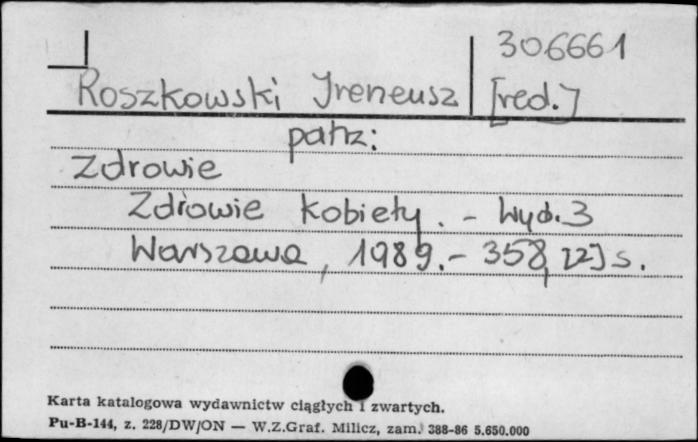 306661
Roszkowski Ireneusz [red.]
patrz:
Zdrowie
Zdrowie kobiety. - Wyd. 3
Warszawa, 1989. - 358, [2] s.
Karta katalogowa wydawnictw ciągłych i zwartych.
Pu-B-144, z. 228/DW/ON — W.Z.Graf. Milicz, zam. 388-86 5.650.000